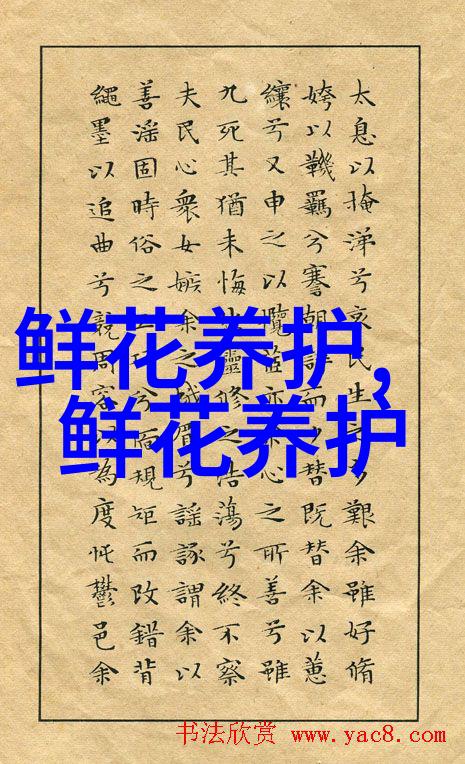 鲜花养护,
鲜花养护
太息以掩涕兮哀民生之多艱余雖好脩
姱以鞿羈兮謇朝誶而夕替既替余以蕙
纕兮又申之以攬茝亦余心之所善兮雖
九死其猶未悔怨靈脩之浩蕩兮終不察
夫民心衆女嫉余之蛾眉兮謠諑謂余以
善淫固時俗之工巧兮偭規矩而改錯背
繩墨以追曲兮競周容以為度忳鬱邑余
书法欣赏 www.yac8.com